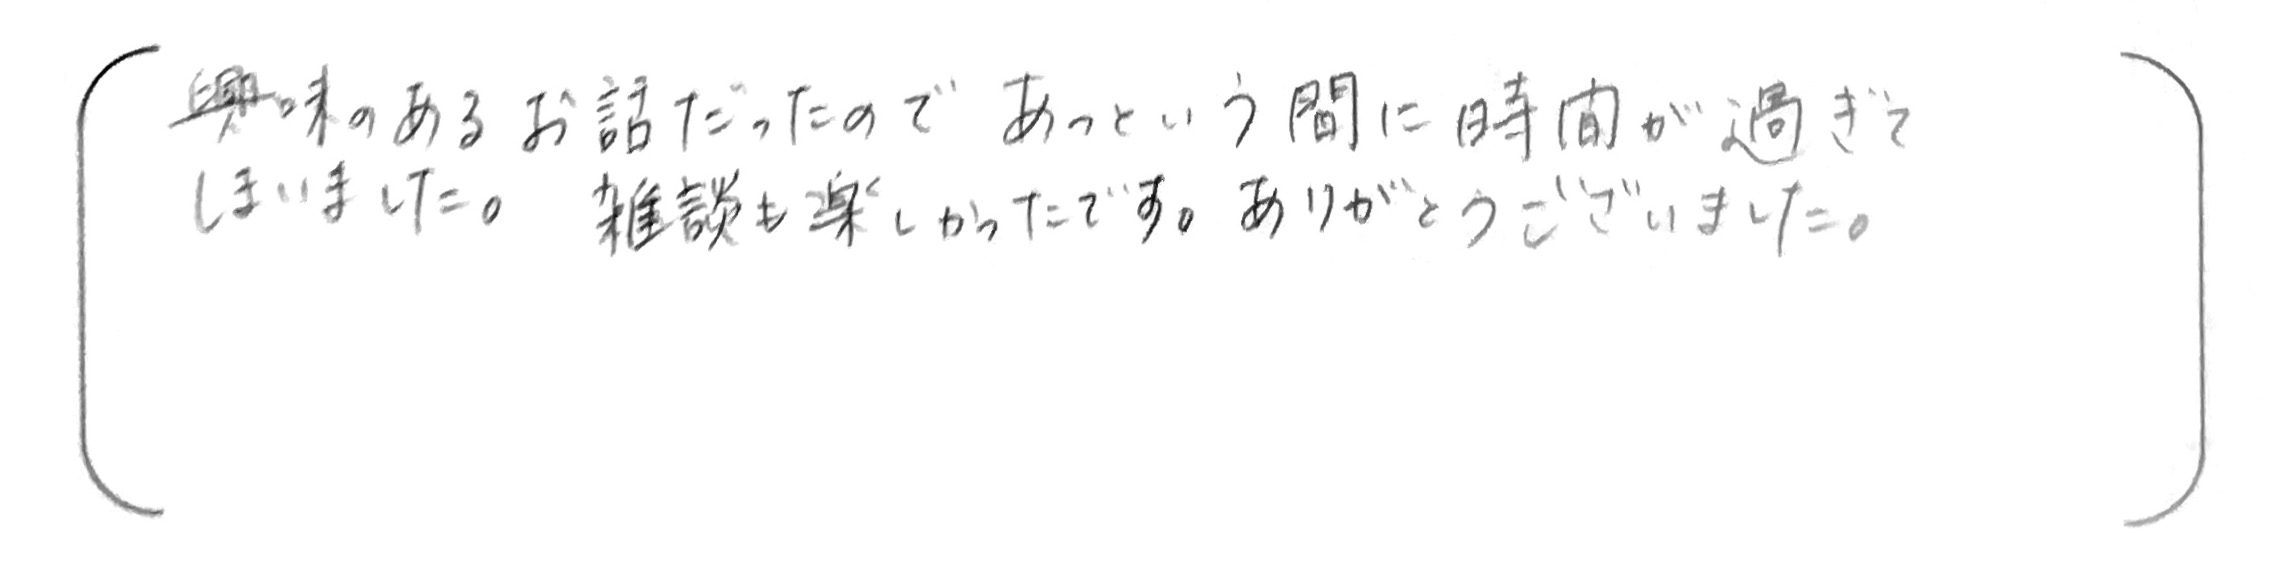 興味のあるお話だったので あっという間に時間が過ぎて
しまいました。 雑談も楽しかったです。ありがとうございました。